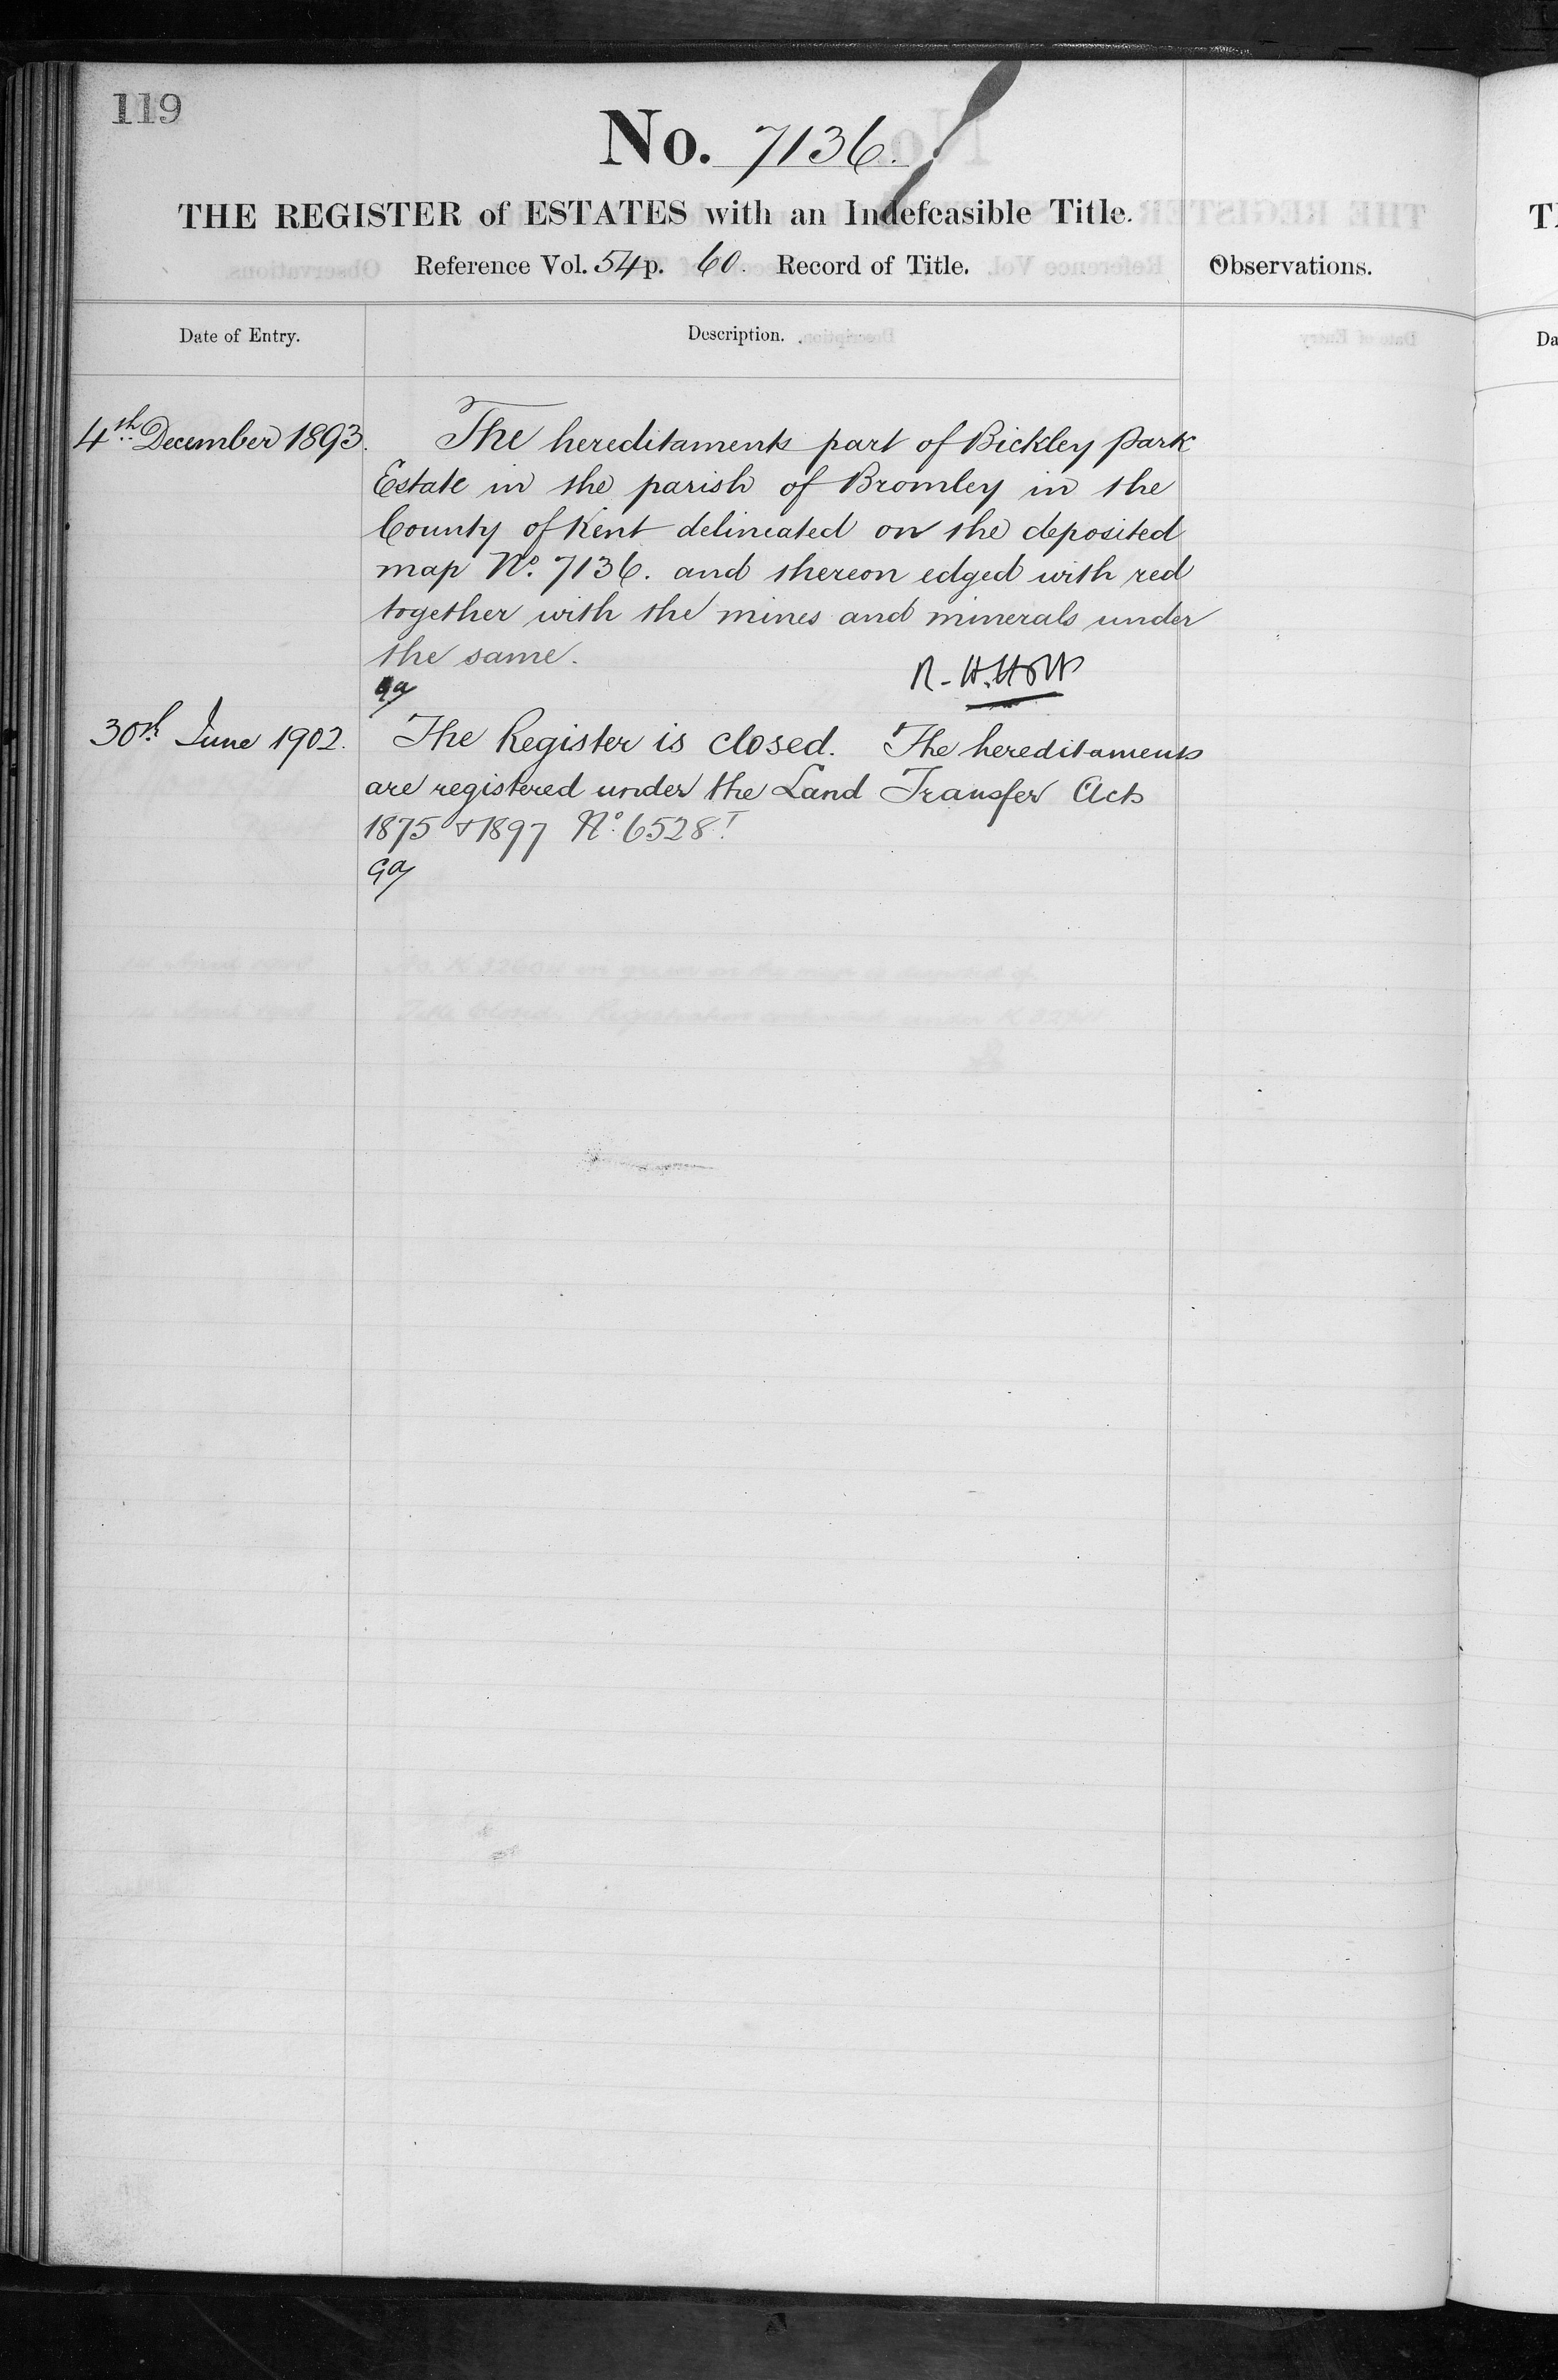 119
No. 7136.
THE REGISTER of ESTATES with an Indefeasible Title.
Reference Vol. 54 p. 60. Record of Title.
Observations.
Date of Entry.
Description.
4th December 1893.
The hereditaments part of Bickley Park
Estate in the parish of Bromley in the
County of Kent delineated on the deposited
map No. 7136. and thereon edged with red
together with the mines and minerals under
the same.
R. H. Holt
30th June 1902.
The Register is closed. The hereditaments
are registered under the Land Transfer Acts
1875 & 1897 No. 6528
Da